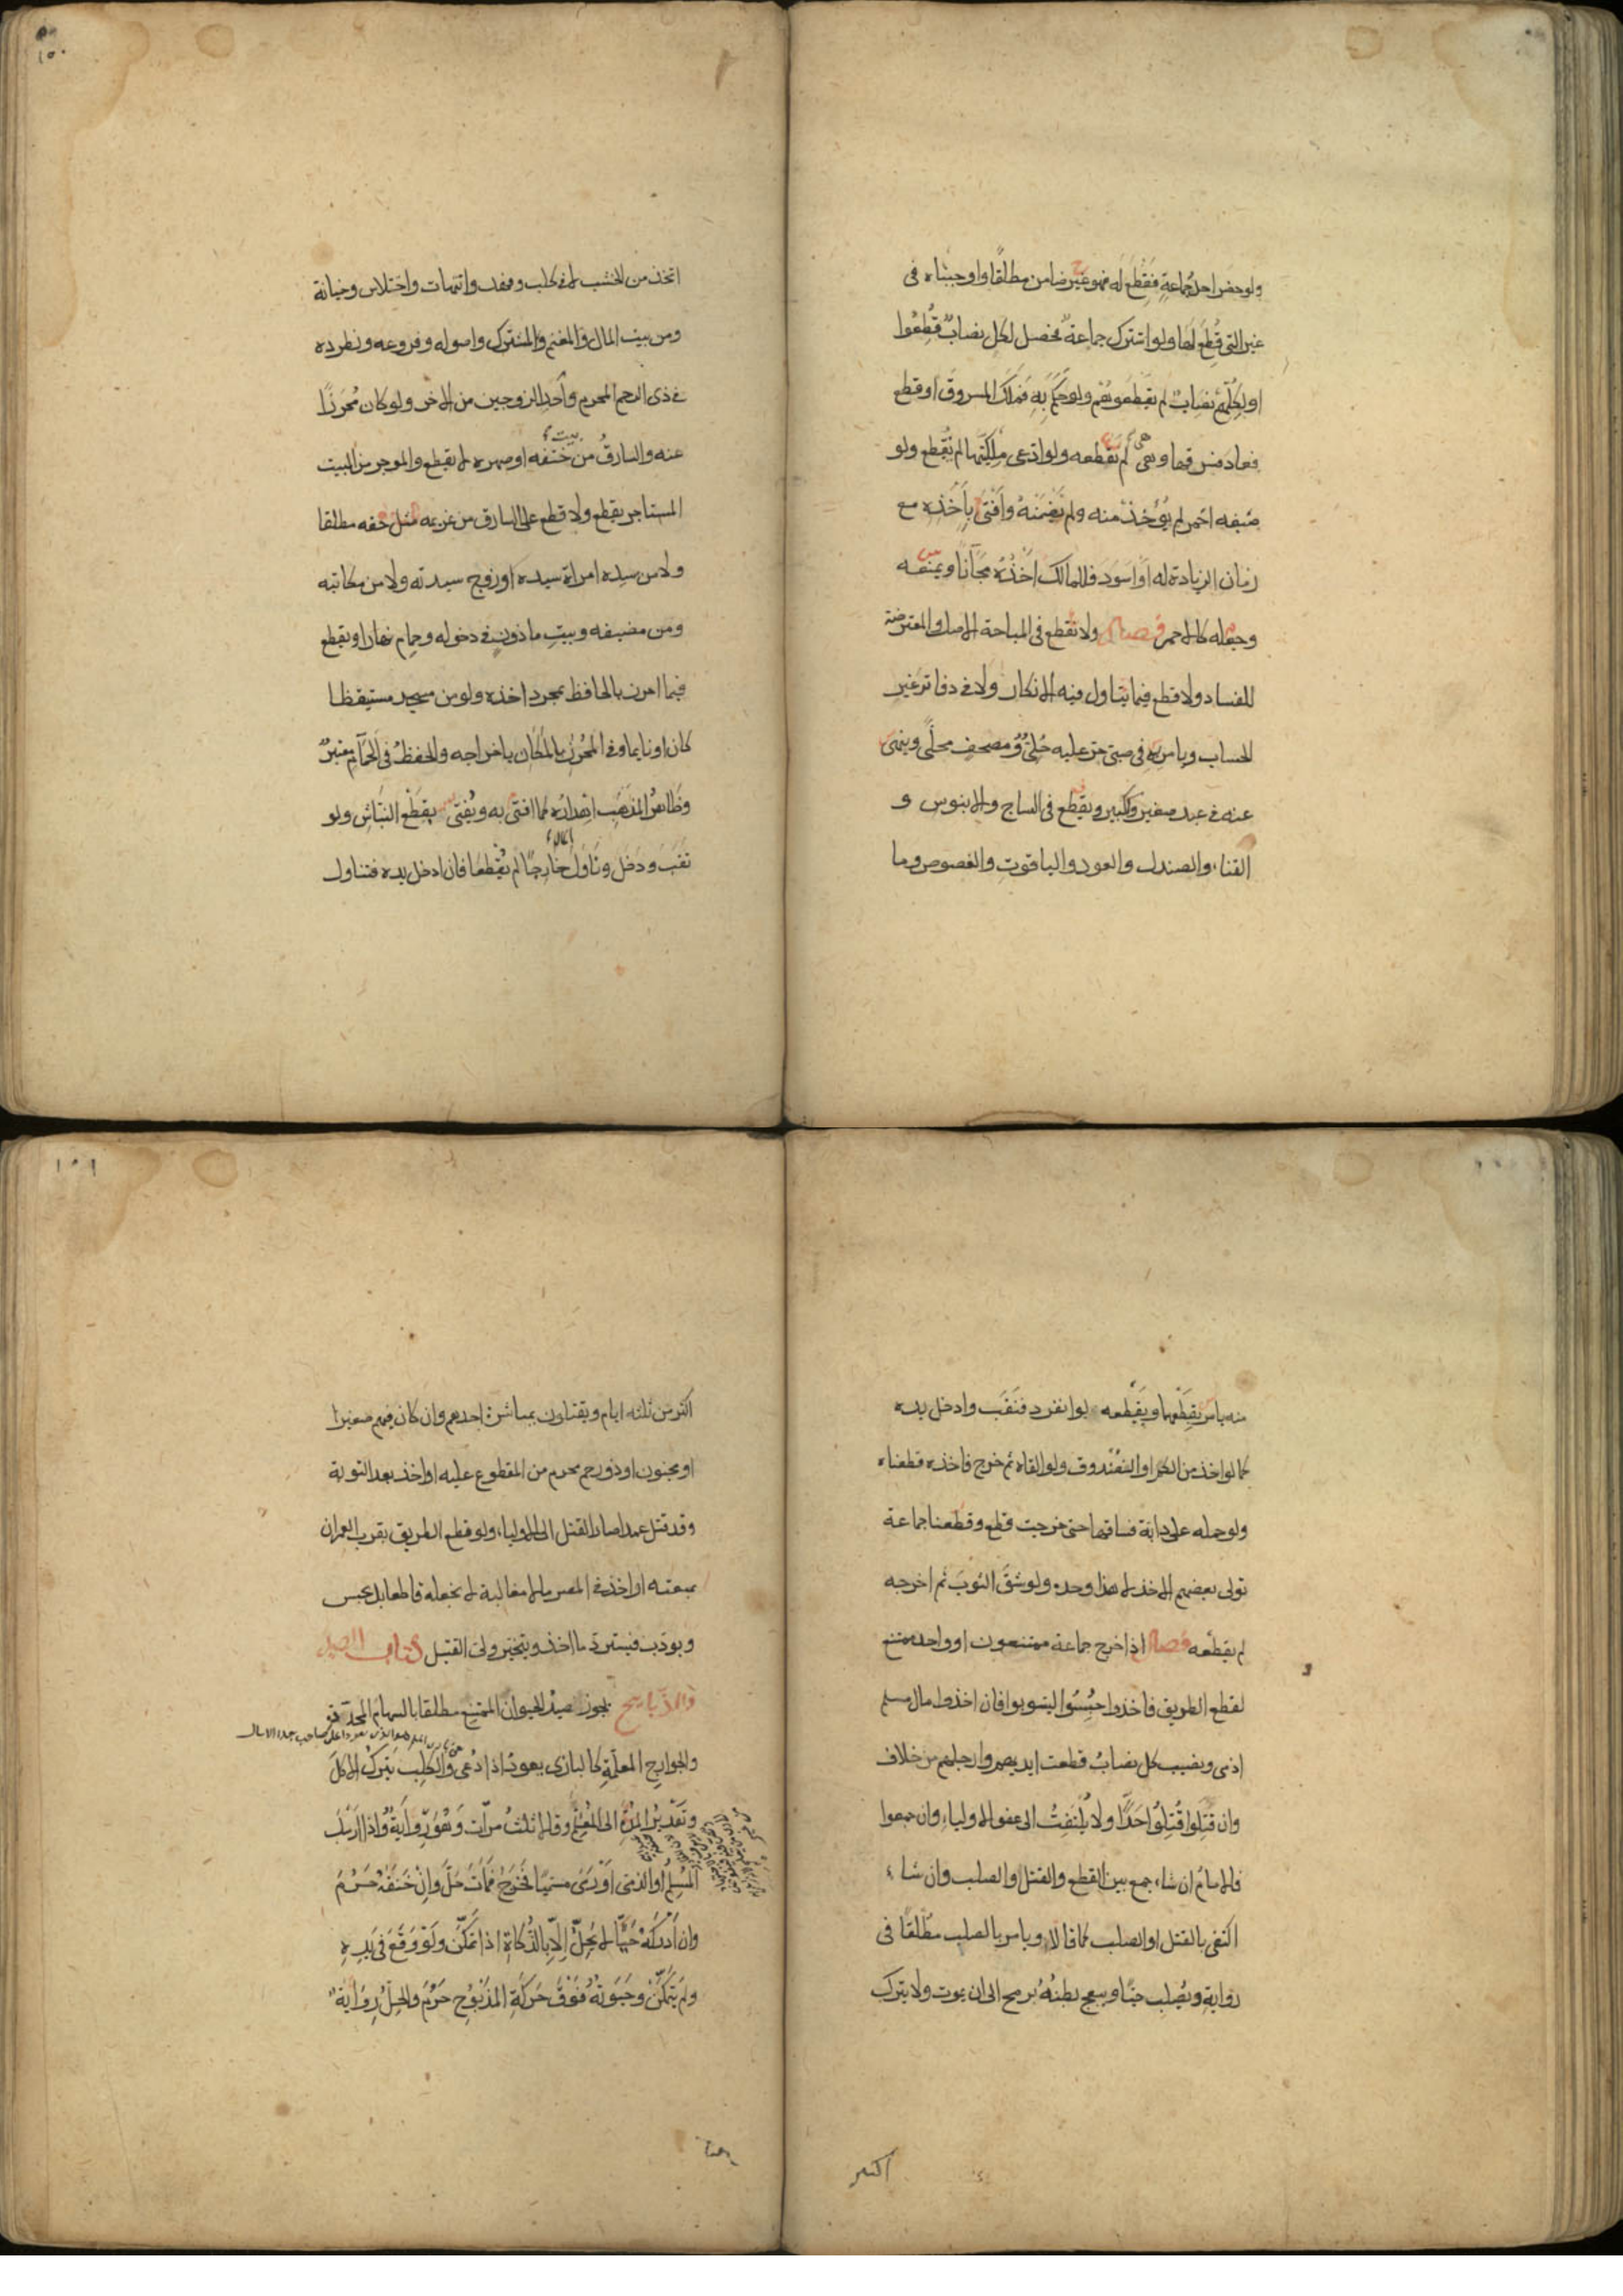 ولو حضر احد جماعة فقطع له فهو غير ضامن مطلقا واوجبناه فى
غير التى قطع لها ولو اشترك جماعة فحصل لكل نصاب قطعوا
او لكلهم نصاب لم يقطعوهم ولو حكم به فملك المسروق او قطع
فعاد فسرقها وهى لم نقطعه ولو ادعى ملكيتها لم نقطع ولو
صبغه احمر لم يؤخذ منه ولم نضمنه وافتى باخذه مع
ضمان الزيادة له او اسود فللمالك اخذه مجانا ويمنعه
وجعله كالاحمر فصل ولا نقطع فى المباحة الاصل والمعترضة
للفساد ولا قطع فيما يتأول فيه الانكار ولا فى دفاتر غير
الحساب ويأمر به فى صبى حر عليه حلى ومصحف محلى وينهى
عنه فى عبد صغير وكبير ونقطع فى الساج والابنوس و
القناء والصندل والعود والياقوت والفصوص وما
١٥٠
اتخذ من الخشب لا فى كلب وفهد وانتهاب واختلاس وخيانة
ومن بيت المال والمغنم والمشترك واصوله وفروعه ونطرده
فى ذى الرحم المحرم واحد الزوجين من الاخر ولو كان محرزا
عنه والسارق من بيت ختنه او صهره لا يقطع والموجر من البيت
المستاجر يقطع ولا قطع على السارق من غريمه مثل حقه مطلقا
ولا من سيده امراة سيده او زوج سيدته ولا من مكاتبه
ومن مضيفه وبيت ماذون فى دخوله وحمام نهارا ويقطع
فيما احرز بالحافظ بمجرد اخذه ولو من مسجد مستيقظا
كان او نايما وفى المحرز بالمكان باخراجه والحفظ فى الحمام معتبر
وظاهر المذهب اهداره كما افتى به ويفتى بقطع النباش ولو
نقب ودخل وناول خارجا لم نقطعا فان ادخل يده فتناول
منه يامر بقطعهما ويقطعه لو انفرد فنقب وادخل يده
كما لو اخذ من الكم او الصندوق ولو القاه ثم خرج فاخذه قطعناه
ولو حمله على دابة فساقها حتى خرجت قطع وقطعنا جماعة
تولى بعضهم الاخذ لا هذا وحده ولو شق الثوب ثم اخرجه
لم يقطعه فصل اذا خرج جماعة ممتنعون او واحد ممتنع
لقطع الطريق فاخذوا حبسوا ليتوبوا فان اخذوا مال مسلم
او ذمى ونصيب كل نصاب قطعت ايديهم وارجلهم من خلاف
وان قتلوا قتلوا حدا ولا يلتفت الى عفو الاولياء وان جمعوا
فالامام ان شاء جمع بين القطع والقتل والصلب وان شاء
اكتفى بالقتل او الصلب كما قالا ويامر بالصلب مطلقا فى
رواية ويصلب حيا ويبعج بطنه برمح الى ان يموت ولا يترك
اكثر
١٥١
اكثر من ثلثه ايام ويقتلون بمباشرة احدهم وان كان فيهم صغير
او مجنون او ذو رحم محرم من المقطوع عليه او اخذ بعد التوبة
وقد قتل عمدا صار القتل الى الاولياء ولو قطع الطريق بقرب العمران
بمنعته او اخذ فى المصر مالا مغالبة لا نجعله قاطعا بل يحبس
ويودب فيسترد ما اخذ ويتخير ولى القتيل كتاب الصيد
والذبايح يجوز صيد الحيوان الممتنع مطلقا بالسهام المحددة
والجوارح المعلمة كالبازى يعود اذا دعى والكلب يترك الاكل
وتقدير المدة الى المعلم وقالا ثلث مرات وهو رواية واذا ارسل
المسلم او الذمى او رمى مسميا فخرج فمات حل وان خنقه حرم
وان ادركه حيا لا يحل الا بالذكاة اذا تمكن ولو وقع فى يده
ولم يتمكن وحيوته فوق حركة المذبوح حرم والحل رواية